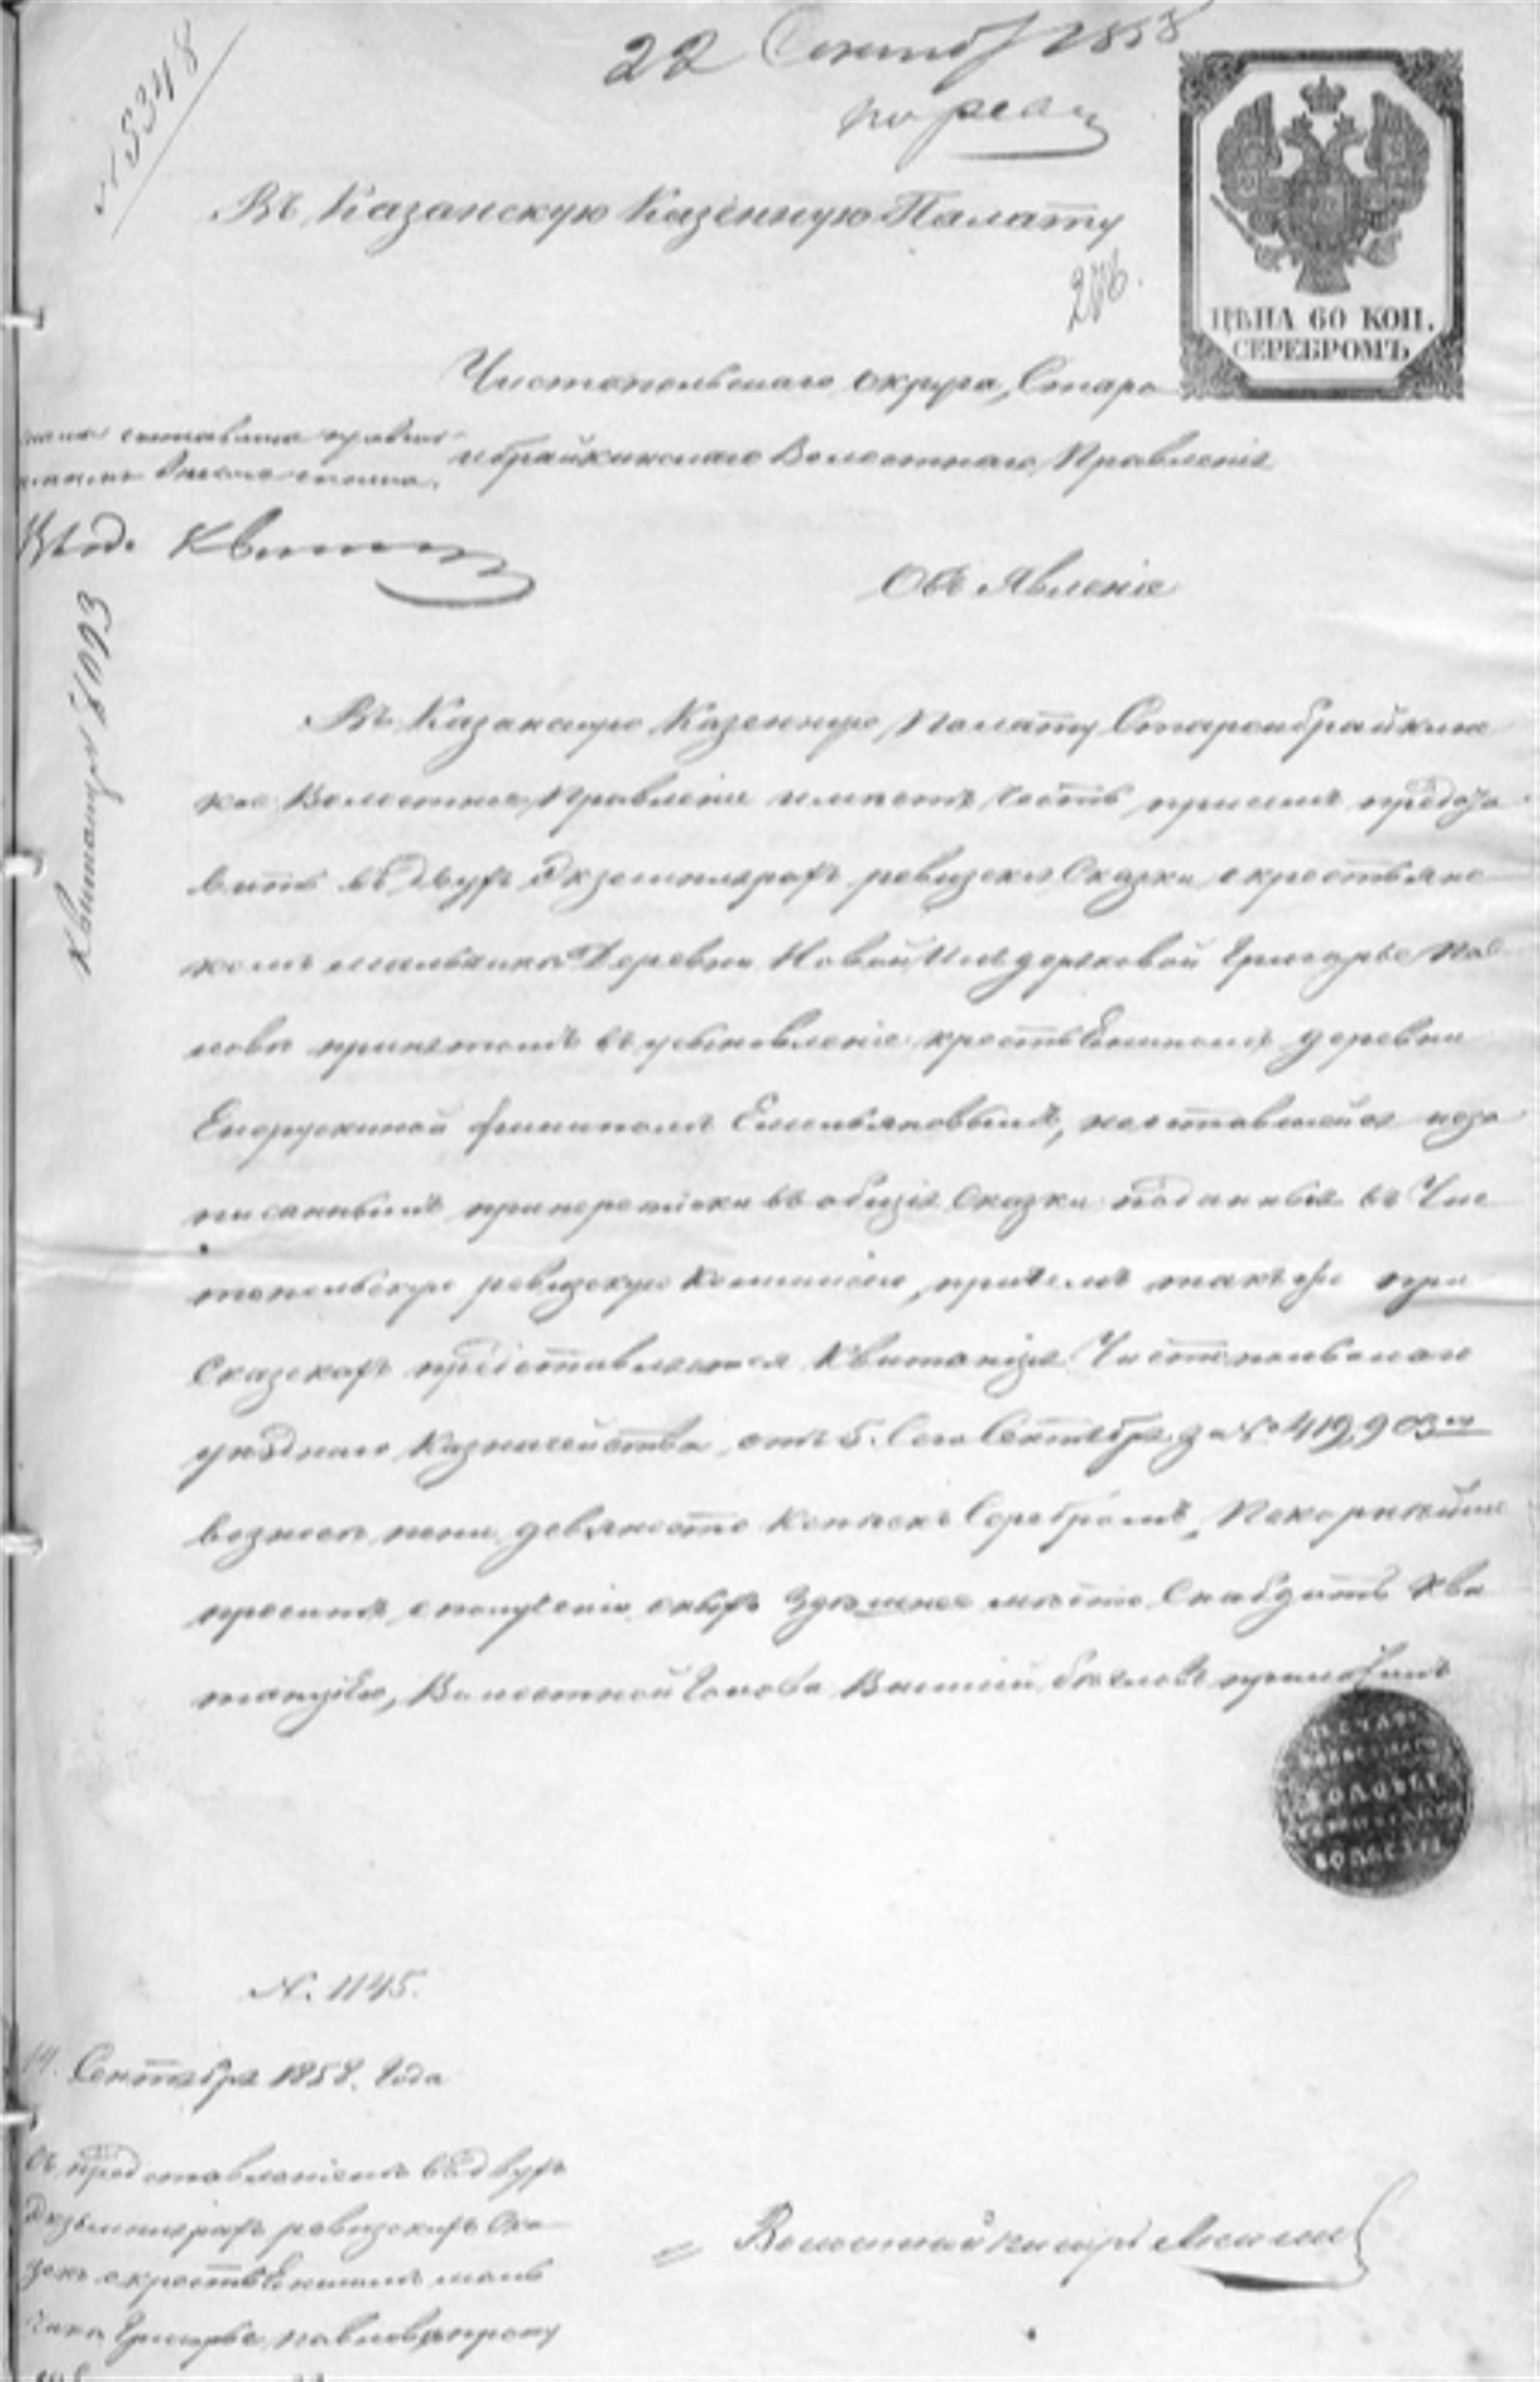 № 5348
22 Сентяб 1858
Въ Казанскую Казенную Палату
206.
ЦѢНА 60 КОП.
СЕРЕБРОМЪ
Чистопольскаго округа, Старо
ибрайкинскаго Волостнаго Правленія
Объявленіе
Квитанція 8093
Въ Казанскую Казенную Палату Староибрайкинс
кое Волостное Правленіе имѣетъ честь при семъ предста
вить въ двухъ Экземплярахъ ревизскія Сказки о крестьянс
комъ мальчикѣ Деревни Новой Григорьѣ Пав
ловѣ принятомъ въ усыновленіе крестьяниномъ деревни
Емельяновымъ, оставшемся неза
писаннымъ при переписки въ общія Сказки поданныя въ Чис
топольскую ревизскую Коммисію, причемъ также при
Сказкахъ представляется Квитанція Чистопольскаго
уѣзднаго Казначейства отъ 5. Сего Сентября за № 419, 9
взносѣ пени девяносто копѣекъ Серебромъ, Покорнѣйше
проситъ о полученіи оныхъ Здѣшнее мѣсто Снабдить Кви
танціею, Волостной Голова приложилъ
ПЕЧАТЬ
ГОЛОВЫ
ВОЛОСТИ
N. 1145.
14. Сентября 1858. Года
Съ представленіемъ въ двухъ
Экземплярахъ ревизскихъ Ска
зокъ о крестьянскомъ маль
чикѣ Григорьѣ Павловѣ
Волостной писарь